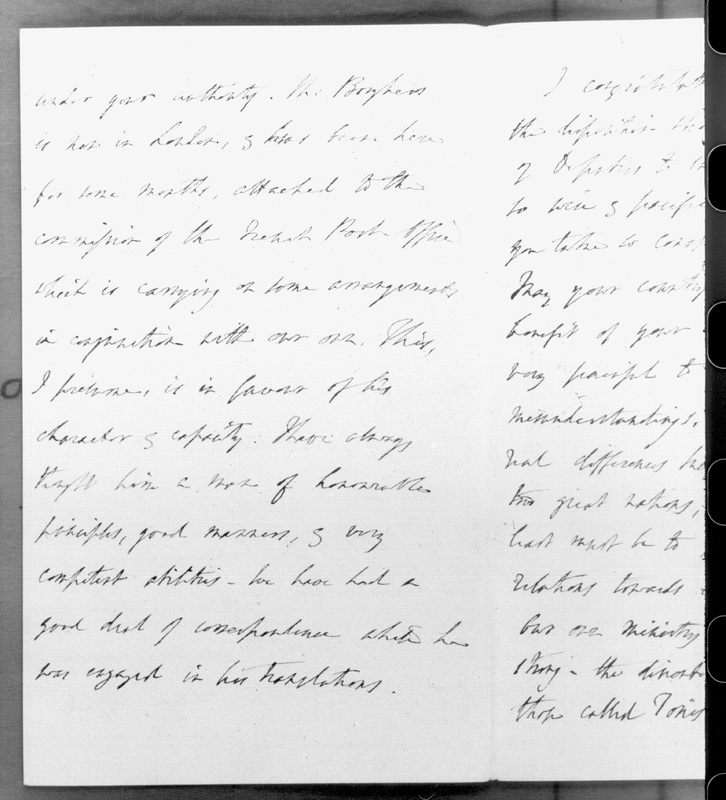 under your authority. Mr. Borghers
is now in London, & has been here
for some months, attached to the
commission of the French Post Office
which is carrying on some arrangements
in conjunction with our own. This,
I presume, is in favour of his
character & capacity. I have always
thought him a man of honourable
principles, good manners, & very
competent abilities - We have had a
good deal of correspondence while he
was engaged in his translations.
I congratulat
the disposition
of Deputies to
so wise & pacific
you to the
May your country
benefit of your
very painful to
misunderstandings,
real differences
two great nations,
least must be to
relations towards
Our own ministry
strong - the
those called Tories